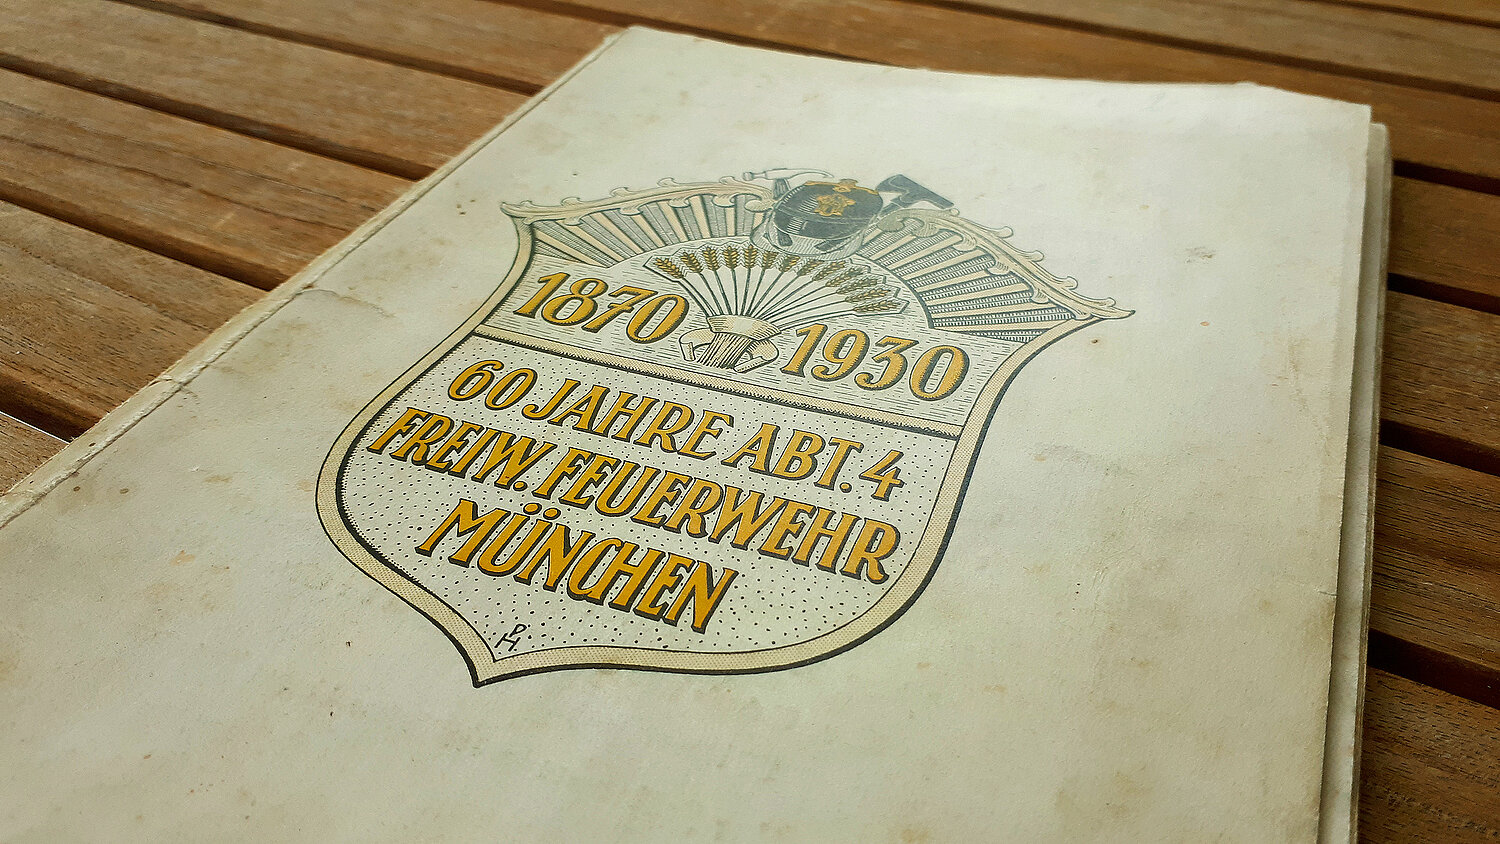 1870 1930
60 JAHRE ABT. 4
FREIW. FEUERWEHR
MÜNCHEN